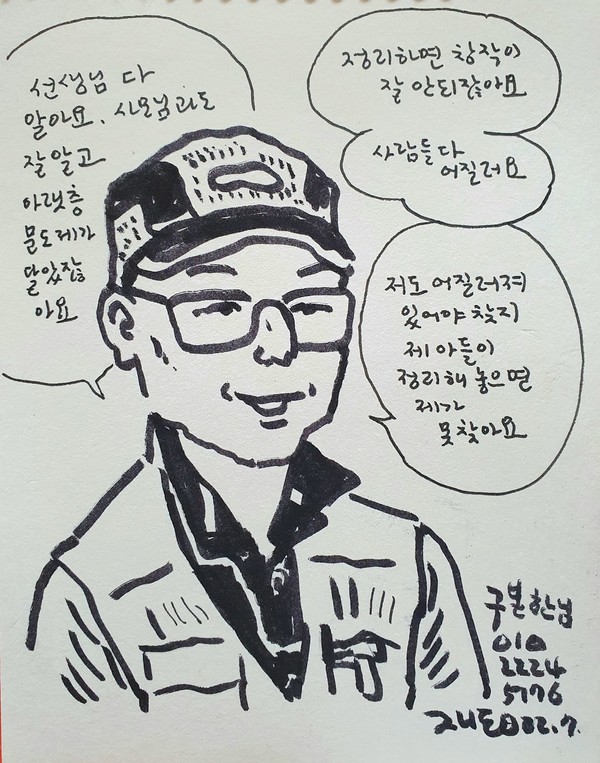 선생님 다
알아요. 사모님과도
잘 알고
아랫층
물도 제가
달았잖
아요
정리하면 창작이
잘 안되잖아요
사람들 다
어질러요
저도 어질러져
있어야 찾지
제 아들이
정리해 놓으면
제가
못찾아요
구본한님
010
2224
5776